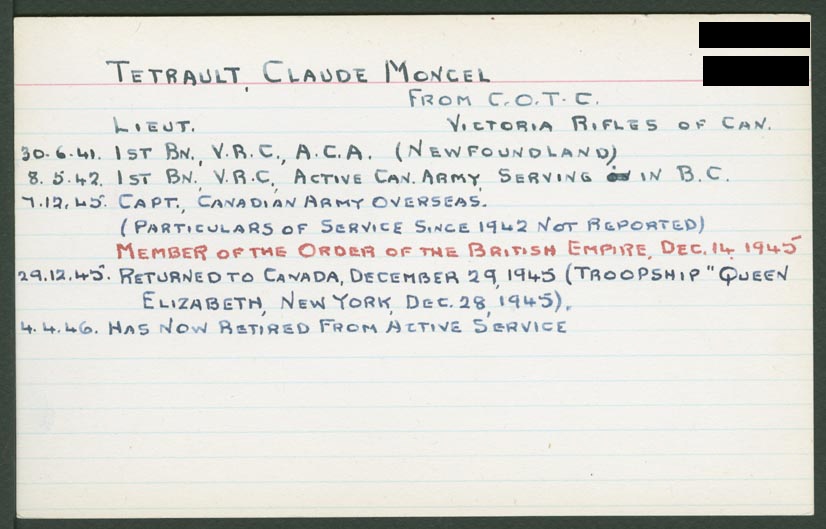 TETRAULT, CLAUDE MONCEL
FROM C.O.T.C.
LIEUT. VICTORIA RIFLES OF CAN.
30.6.41. 1ST BN., V.R.C., A.C.A. (NEWFOUNDLAND)
8.5.42. 1ST BN., V.R.C, ACTIVE CAN. ARMY, SERVING IN B.C.
7.12.45. CAPT., CANADIAN ARMY OVERSEAS.
(PARTICULARS OF SERVICE SINCE 1942 NOT REPORTED)
MEMBER OF THE ORDER OF THE BRITISH EMPIRE, DEC. 14, 1945
29.12.45. RETURNED TO CANADA, DECEMBER 29, 1945 (TROOPSHIP "QUEEN
ELIZABETH, NEW YORK, DEC. 28, 1945).
4.4.46. HAS NOW RETIRED FROM ACTIVE SERVICE